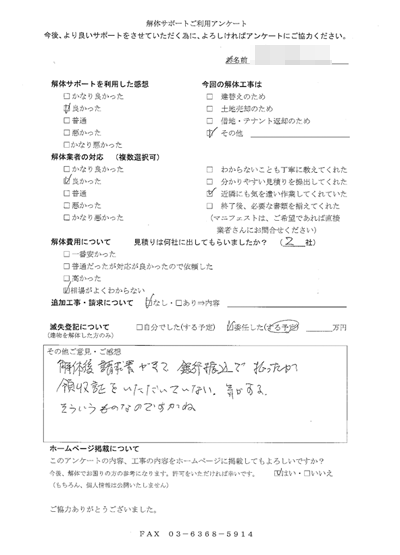 解体サポートご利用アンケート
今後、より良いサポートをさせていただく為に、よろしければアンケートにご協力ください。
お名前
解体サポートを利用した感想
□かなり良かった
☑良かった
□普通
□悪かった
□かなり悪かった
今回の解体工事は
□ 建替えのため
□ 土地売却のため
□ 借地・テナント返却のため
☑ その他
解体業者の対応 (複数選択可)
□かなり良かった
☑良かった
□普通
□悪かった
□かなり悪かった
□ わからないことも丁寧に教えてくれた
□ 分かりやすい見積りを提出してくれた
☑ 近隣にも気を遣い作業してくれていた
□ 終了後、必要な書類を揃えてくれた
(マニフェストは、ご希望であれば直接
業者さんにお問合せください)
解体費用について 見積りは何社に出してもらいましたか? (2 社)
□一番安かった
□普通だったが対応が良かったので依頼した
□高かった
☑相場がよくわからない
追加工事・請求について ☑なし・□あり⇒内容
滅失登記について □自分でした(する予定) ☑委任した(する予定) 万円
(建物を解体した方のみ)
その他ご意見・ご感想
解体後 請求書がきて 銀行振込で 払ったが
領収証をいただいていない。気がする。
そういうものなのですかね
ホームページ掲載について
このアンケートの内容、工事の内容をホームページに掲載してもよろしいですか?
今後、解体でお困りの方の参考になります。許可をいただければ幸いです。 ☑はい・□いいえ
(もちろん、個人情報は公開いたしません)
ご協力ありがとうございました。
FAX 03-6368-5914